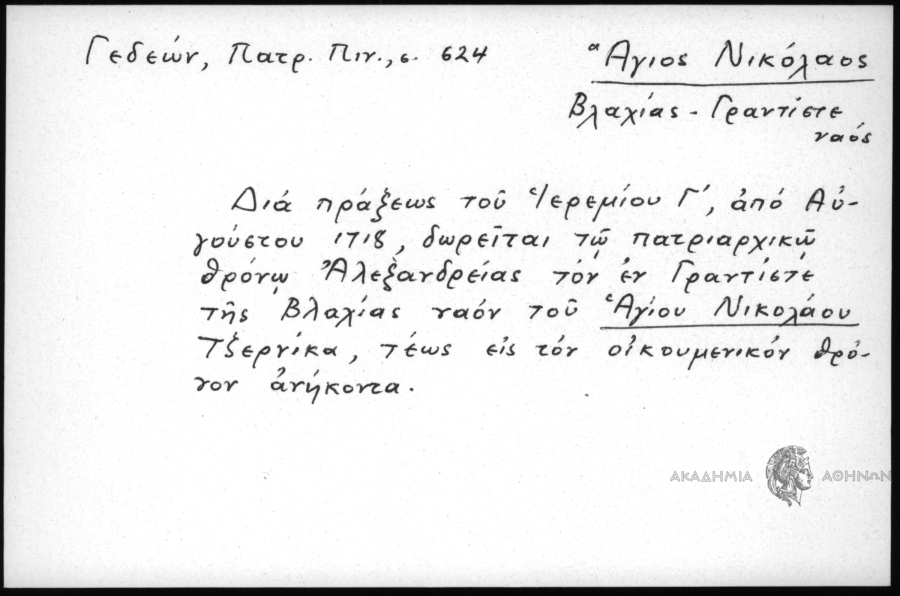 Γεδεών, Πατρ. Πιν., σ. 624
Ἅγιος Νικόλαος
Βλαχίας - Γραντίστε
ναός
Διά πράξεως τοῦ Ἱερεμίου Γ΄, ἀπό Αὐ-
γούστου 1718, δωρεῖται τῷ πατριαρχικῷ
θρόνῳ Ἀλεξανδρείας τόν ἐν Γραντίστε
τῆς Βλαχίας ναόν τοῦ Ἁγίου Νικολάου
Τζερνίκα, τέως εἰς τόν οἰκουμενικόν θρό-
νον ἀνήκοντα.
ΑΚΑΔΗΜΙΑ ΑΘΗΝΩΝ